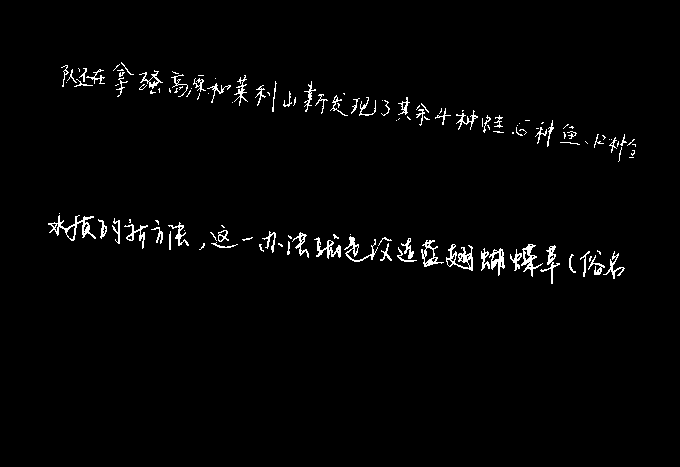 队还在拿骚高原和莱利山新发现了其余4种蛙、6种鱼、12种
水质的新方法，这一办法就是没连蓝翅蝴蝶草（俗名